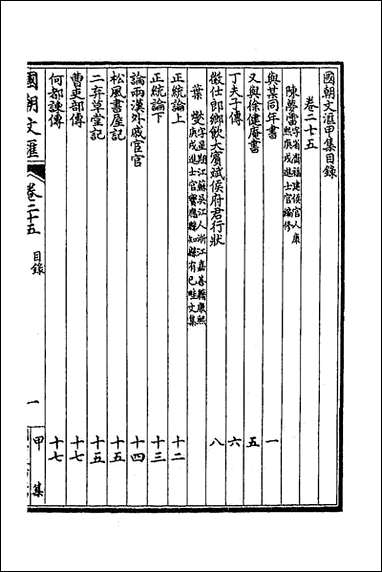 國朝文滙甲集目錄
卷二十五
陳夢雷字省齋福建侯官人康熙庚戌進士官編修
與某同年書 一
又與徐健庵書 五
丁夫子傳 六
徵仕郎鄉飲大賓斌侯府君行狀 八
葉燮字星期江蘇吳江人浙江嘉善籍康熙庚戌進士官寶應縣知縣有已畦文集
正統論上 十二
正統論下 十三
論兩漢外戚宦官 十四
松風書屋記 十五
二弃草堂記 十五
曹吏部傳 十七
何都諫傳 十七
國朝文滙 卷二十五 目錄 一 甲集